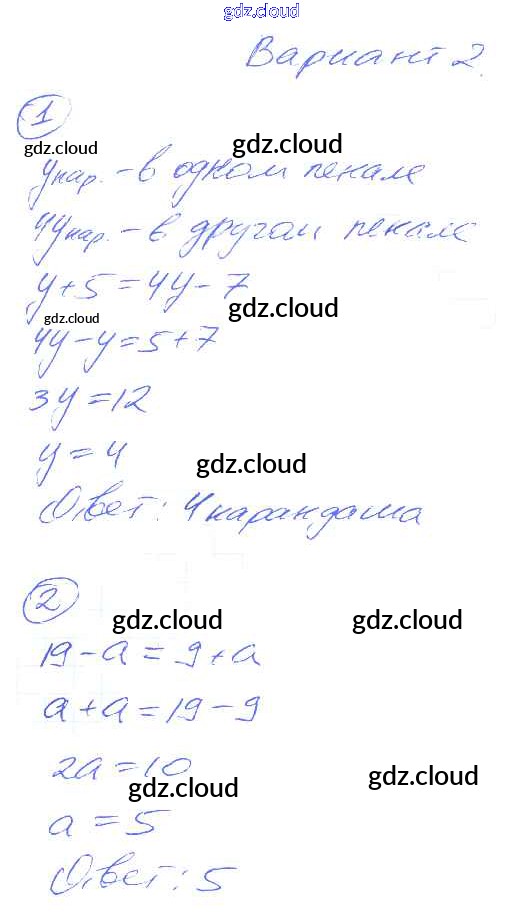 gdz.cloud
Вариант 2.
1
gdz.cloud gdz.cloud
y кар. - в одном пенале
4y кар. - в другом пенале
y+5=4y-7
gdz.cloud
gdz.cloud
4y-y=5+7
3y=12
y=4
gdz.cloud
Ответ: 4 карандаша
2
gdz.cloud gdz.cloud
19-a=9+a
a+a=19-9
2a=10
gdz.cloud gdz.cloud
a=5
Ответ: 5